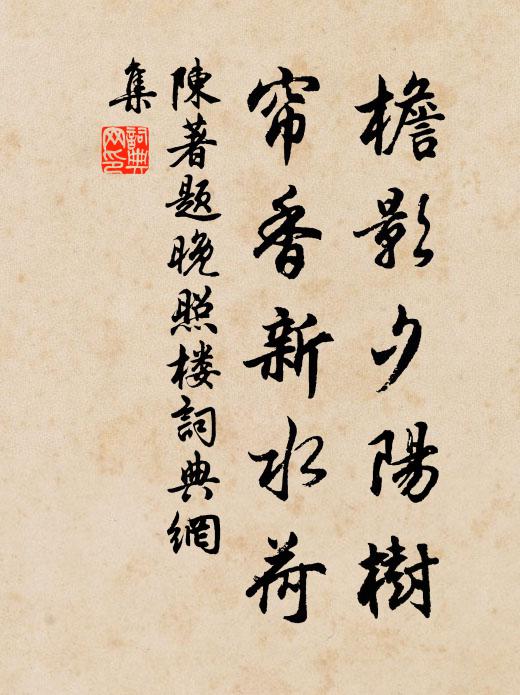 檐影夕陽樹
帘香新水荷
陳著題晚照楼詞典網
集
詞典
网印